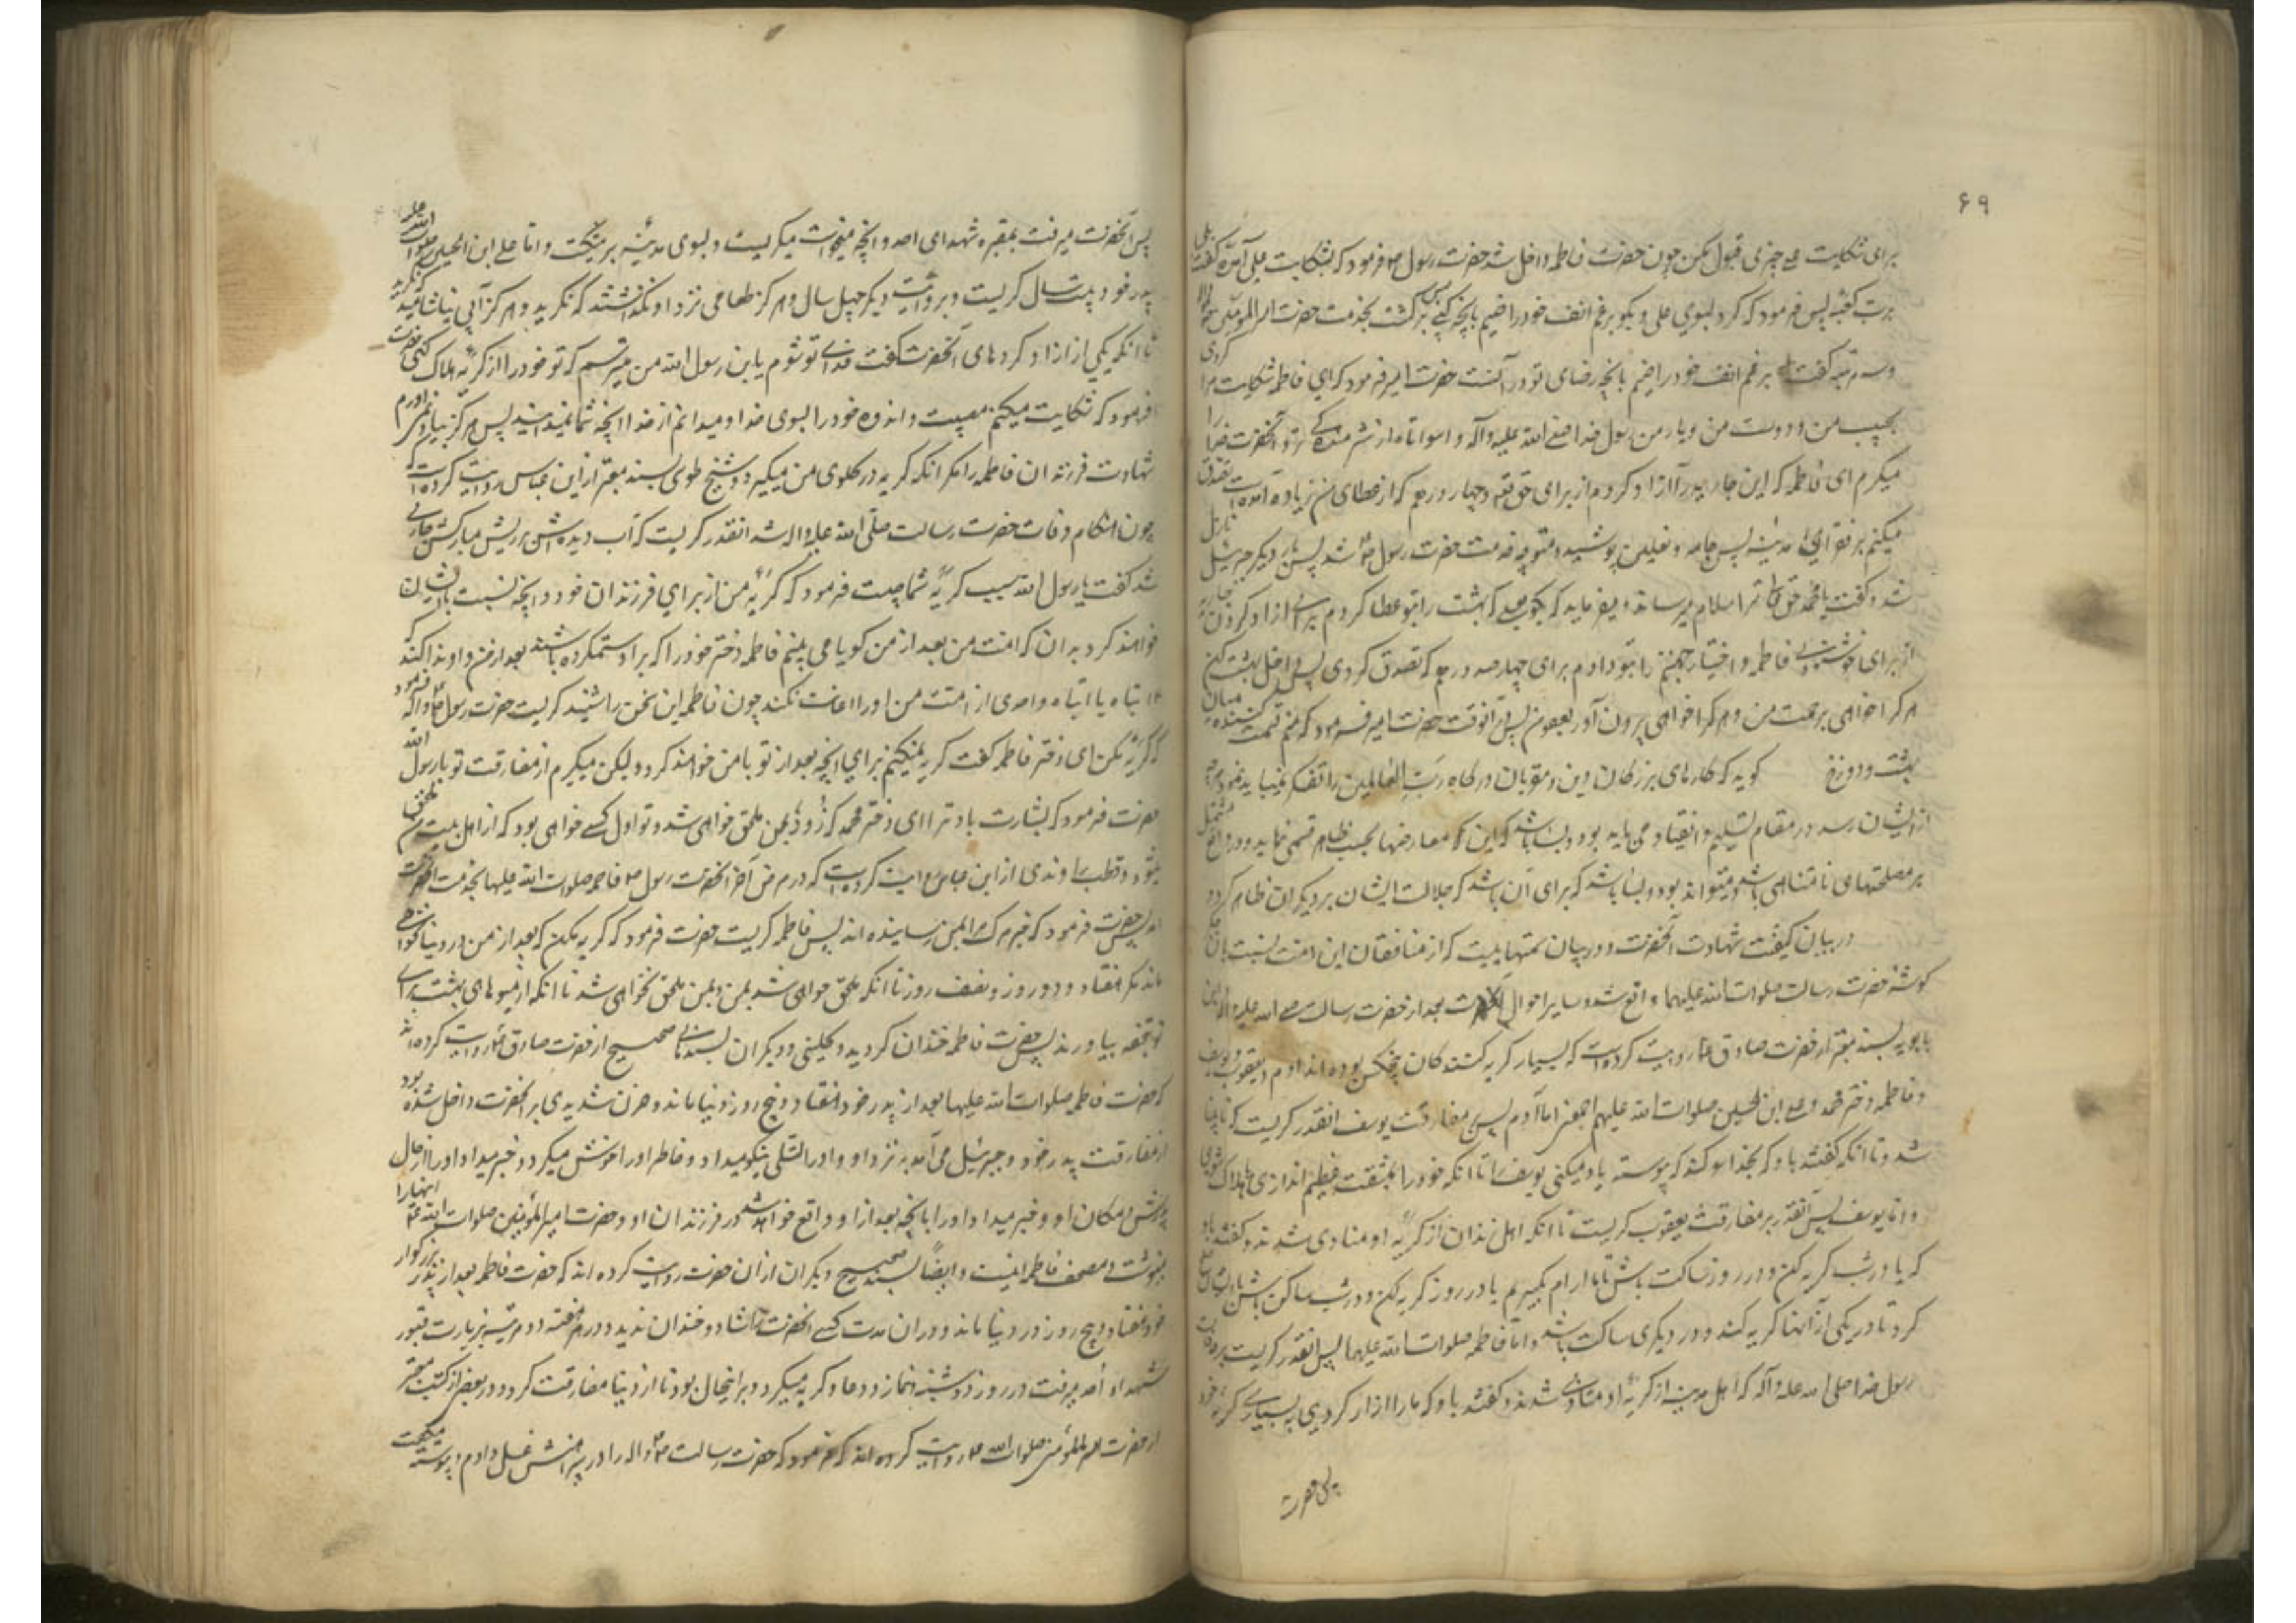 ۶۹
برای شکایت علی چیزی قبول مکن چون حضرت فاطمه داخل شد حضرت رسول ص فرمود که بشکایت علی آمدهٔ گفت بلی
برب کعبه پس فرمود که برگرد بسوی علی و بگو برغم انف خود راضیم بانچه کنی پس برگشت بخدمت حضرت امیر المومنین
و سه مرتبه گفت برغم انف خود راضیم بانچه رضای تو در آنست حضرت امیر فرمود که ای فاطمه شکایت مرا کردی
بحبیب من و دوست من و یار من رسول خدا صلی الله علیه و آله واسوأتاه از شرمندگی نزد آنحضرت خدا را
میگیرم ای فاطمه که این جاریه را آزاد کردم از برای حق تعالی و چهار صد درهم که از عطای من زیاده آمده است تصدق
میکنم بر فقرای مدینه پس جامه و نعلین پوشید و متوجه خدمت حضرت رسول ص شد پس بار دیگر جبرئیل نازل
شد و گفت یا محمد حق تعالی ترا سلام میرساند و میفرماید که بگو بعلی که بهشت را بتو عطا کردم برای آزاد کردن جاریه
از برای خوشنودی فاطمه و اختیار جهنم را بتو دادم برای چهار صد درهم که تصدق کردی پس داخل بهشت کن
هر که را خواهی برحمت من و هر که را خواهی بیرون آور بعفو من پس در آنوقت حضرت امیر فرمود که منم قسمت کننده میان
بهشت و دوزخ گوید که کارهای بزرگان دین و مقربان درگاه رب العالمین را تفکر نمیباید نمود و هر چه
از ایشان رسد در مقام تسلیم و انقیاد می باید بود و بسا باشد که این گونه معارضها بحسب ظاهر قسمی نماید و در واقع مشتمل
بر مصلحتهای نامتناهی باشد و میتواند بود و بسا باشد که برای آن باشد که جلالت ایشان بر دیگران ظاهر گردد
در بیان کیفیت شهادت آنحضرت و در بیان ستمهاییست که از منافقان این امت نسبت بان جگر
گوشهٔ حضرت رسالت صلوات الله علیهما واقع شد و سایر احوال آنحضرت بعد از حضرت رسالت صلی الله علیه و آله ابن
بابویه بسند معتبر از حضرت صادق ع روایت کرده است که بسیار گریه کنندگان پنج کس بوده اند آدم و یعقوب و یوسف
و فاطمه دختر محمد و علی ابن الحسین صلوات الله علیهم اجمعین اما آدم پس بر مفارقت یوسف انقدر گریست که نابینا
شد و تا انکه گفتند باو که بخدا سوگند که پیوسته یاد میکنی یوسف را تا انکه خود را بمشقت عظیم اندازی یا هلاک شوی
و اما یوسف پس آنقدر بر مفارقت یعقوب گریست تا انکه اهل زندان از گریهٔ او متاذی شدند و گفتند باو
که یا در شب گریه کن و در روز ساکت باش تا ما آرام بگیریم یا در روز گریه کن و در شب ساکن باش با ایشان صلح
کرد تا در یکی از آنها گریه کند و در دیگری ساکت باشد و اما فاطمه صلوات الله علیها پس انقدر گریست بر وفات
رسول خدا صلی الله علیه و آله که اهل مدینه از گریهٔ او متاذی شدند و گفتند باو که ما را آزار کردی به بسیاری گریهٔ خود
پس حضرت
پس آنحضرت میرفت بمقبره شهدای احد و انچه میخواست میگریست و بسوی مدینه برمیگشت و اما علی ابن الحسین صلوات الله علیه
پدر خود بیست سال گریست و بروایت دیگر چهل سال و هرگز طعامی نزد او نگذاشتند که نگرید و هرگز آبی نیاشامید که نگرید
تا انکه یکی از آزاد کردهای آنحضرت گفت فدای تو شوم یابن رسول الله من میترسم که تو خود را از گریه هلاک کنی حضرت
فرمود که شکایت میکنم مصیبت و اندوه خود را بسوی خدا و میدانم از خدا انچه شما نمیدانید پس هرگز بیاد نمی آورم
شهادت فرزندان فاطمه را مگر انکه گریه در گلوی من میگیرد و شیخ طوسی بسند معتبر از ابن عباس روایت کرده است که
چون هنگام وفات حضرت رسالت صلی الله علیه و اله شد انقدر گریست که آب دیده اش بر ریش مبارکش جاری
شد گفت یا رسول الله سبب گریهٔ شما چیست فرمود که گریهٔ من از برای فرزندان خود و انچه نسبت بایشان
خواهند کرد بدان که امت من بعد از من گویا می بینم فاطمه دختر خود را که بر او ستم کرده باشند بعد از من و او ندا کند که
یا ابتاه یا ابتاه و احدی از امت من او را اعانت نکند چون فاطمه این سخن را شنید گریست حضرت رسول ص و اله فرمود
که گریه مکن ای دختر فاطمه گفت گریه نمیکنم برای انچه بعد از تو با من خواهند کرد ولیکن میگریم از مفارقت تو یا رسول الله
حضرت فرمود که بشارت باد ترا ای دختر محمد که زود بمن ملحق خواهی شد و تو اول کسی خواهی بود که از اهل بیت من ملحق
میشود و قطب راوندی از ابن عباس روایت کرده است که در مرض آخر آنحضرت رسول ص فاطمه صلوات الله علیها بخدمت آنحضرت
آمد پس حضرت فرمود که خبر مرگ مرا بمن رسانیده اند پس فاطمه گریست حضرت فرمود که گریه مکن که بعد از من در دنیا نخواهی
ماند مگر هفتاد و دو روز و نصف روز تا انکه ملحق خواهی شد بمن و بمن ملحق نخواهی شد تا انکه از میوهای بهشت برای
تو تحفه بیاورند پس حضرت فاطمه خندان گردید و کلینی و دیگران بسندهای صحیح از حضرت صادق ع روایت کرده اند
که حضرت فاطمه صلوات الله علیها بعد از پدر خود هفتاد و پنج روز در دنیا ماند و حزن شدیدی بر آنحضرت داخل شده بود
از مفارقت پدر خود و جبرئیل می آمد به نزد او و او را تسلی نیکو میداد و خاطر او را خوش میکرد و خبر میداد او را از حال
پدرش و مکان او و خبر میداد او را بانچه بعد از او واقع خواهد شد در فرزندان او و حضرت امیر المؤمنین صلوات الله علیه اینها را
مینوشت و مصحف فاطمه اینست و ایضاً بسند صحیح دیگران از آن حضرت روایت کرده اند که حضرت فاطمه بعد از پدر بزرگوار
خود هفتاد و پنج روز در دنیا ماند و در ان مدت کسی انحضرت را شاد و خندان ندید و در هر هفته دو مرتبه بزیارت قبور
شهداء احد میرفت در روز دوشنبه نماز و دعا و گریه میکرد و بر اینحال بود تا از دنیا مفارقت کرد و در بعضی از کتب معتبر
از حضرت امیر المؤمنین صلوات الله علیه روایت کرده اند که فرمود که حضرت رسالت ص و اله را در پیراهنش غسل دادم و پیوسته میگفت